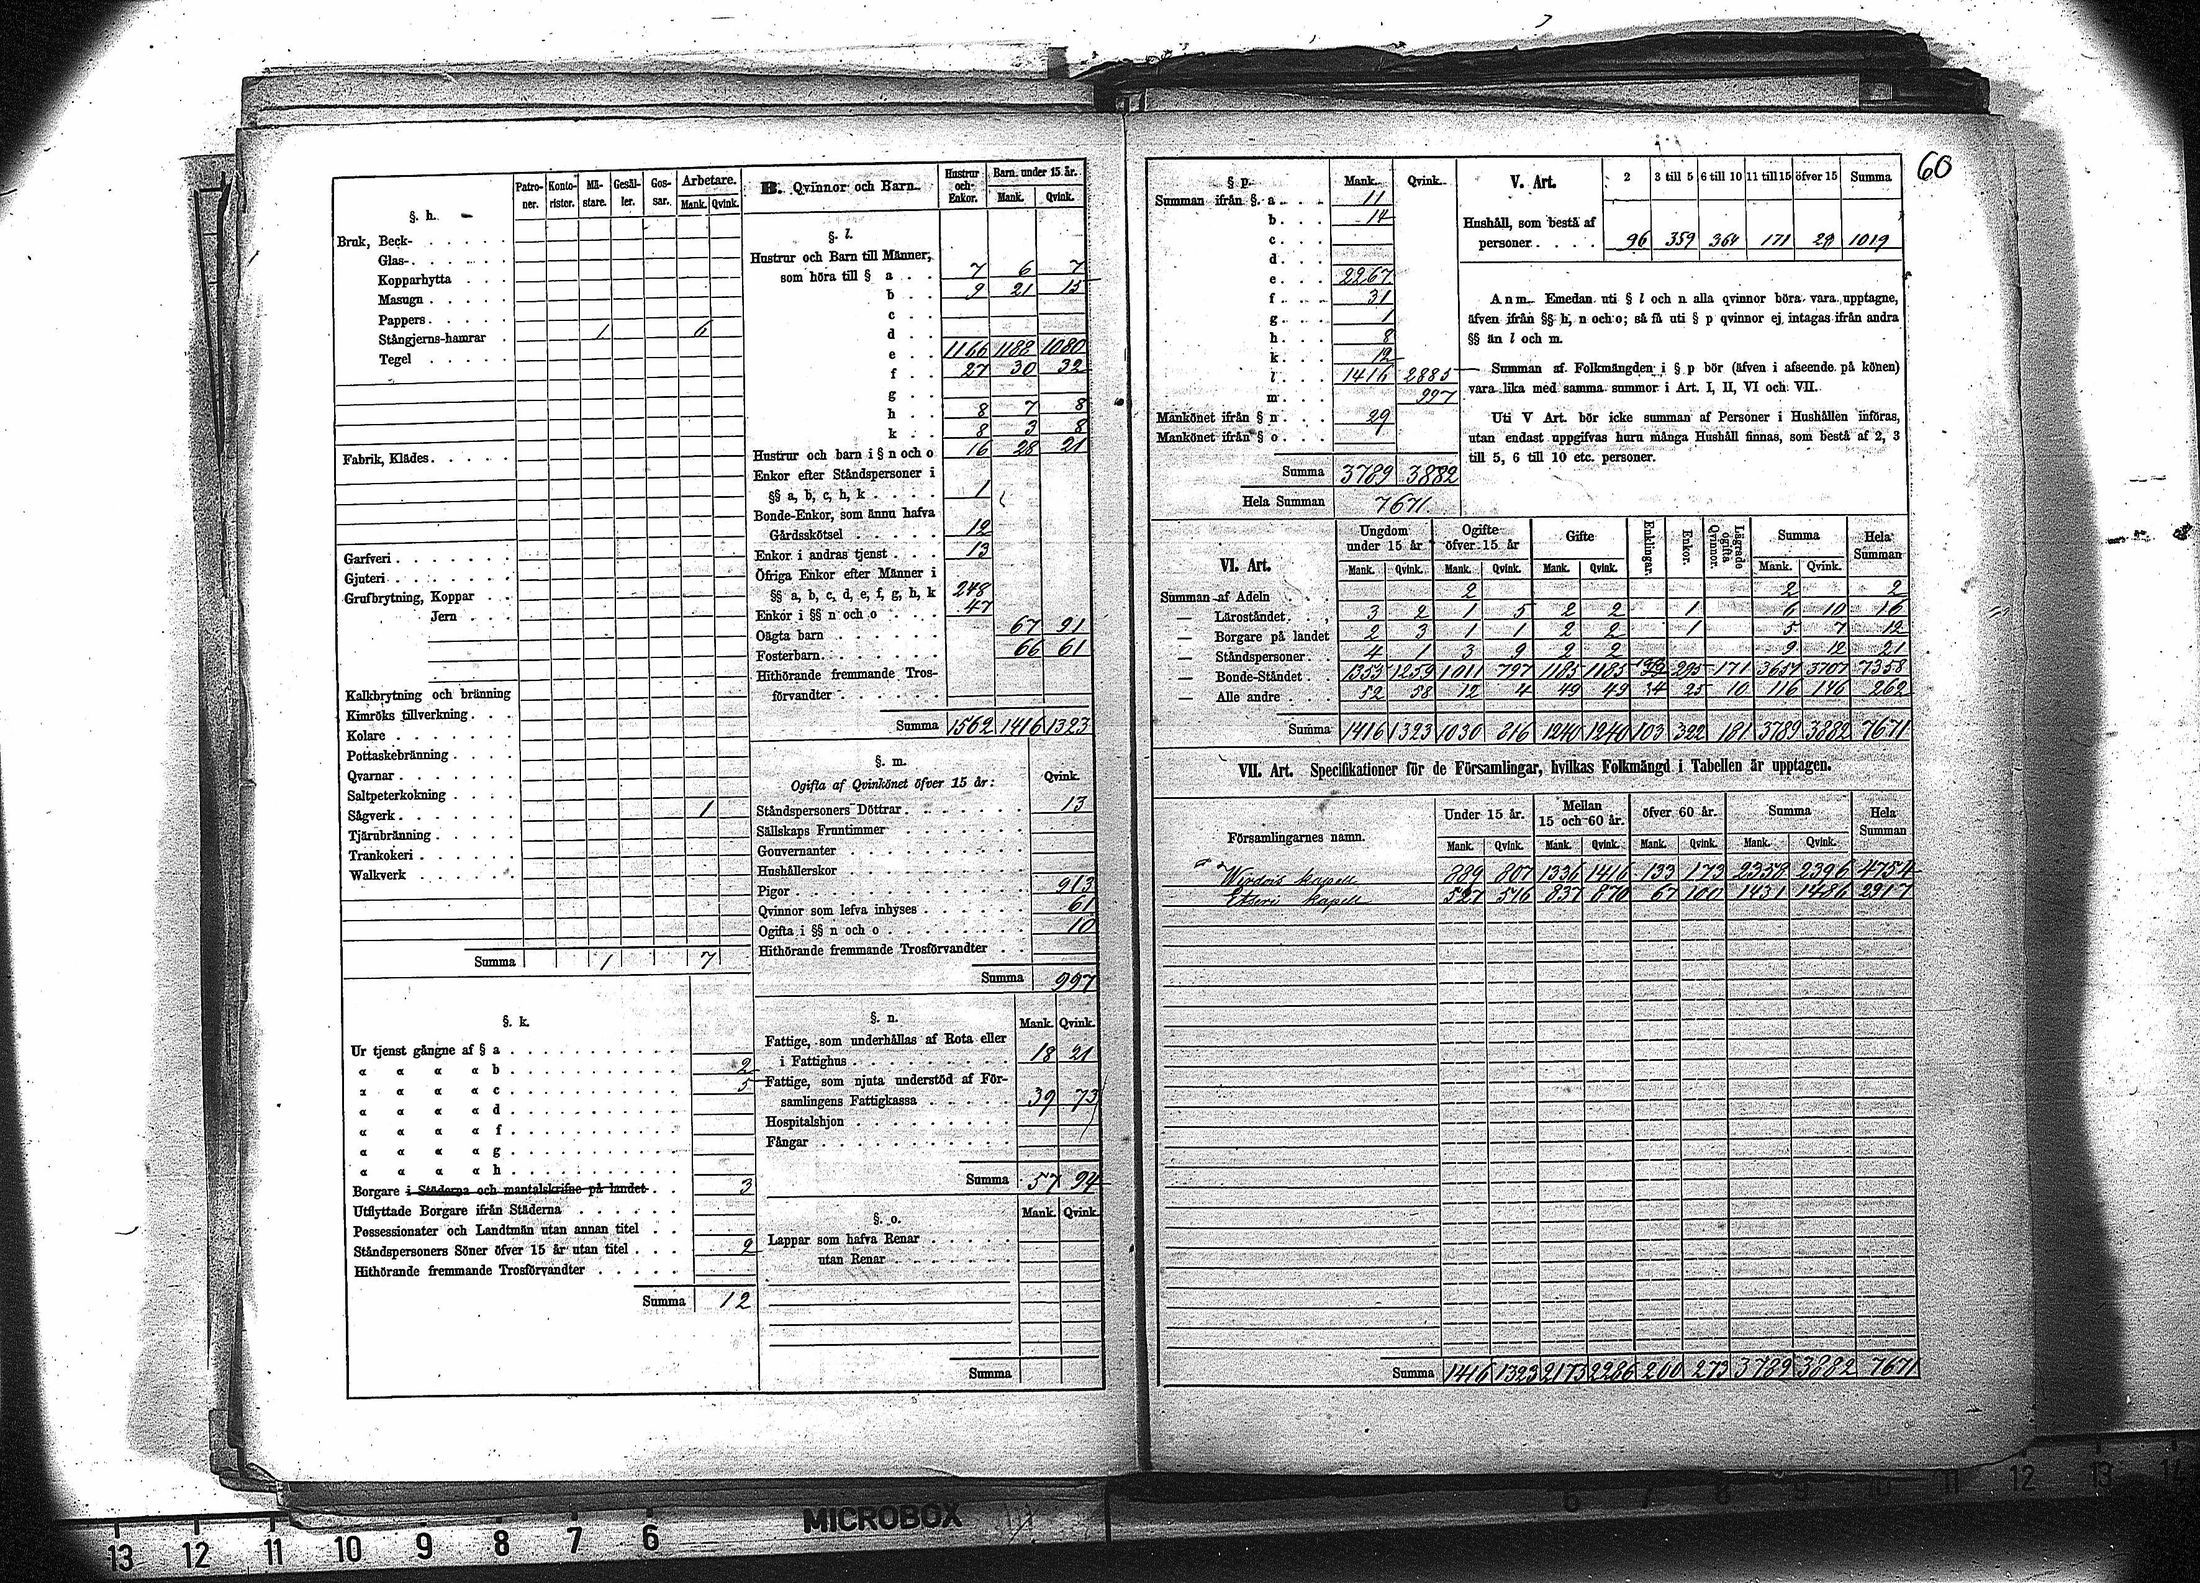 60
Patroner. Kontorister. Mästare. Gesäller. Gossar. Arbetare. Mank. Qvink.
§. h.
Bruk, Beck-
Glas-
Kopparhytta
Masugn
Pappers
Stångjerns-hamrar 1 6
Tegel
Fabrik, Klädes
Garfveri
Gjuteri
Grufbrytning, Koppar
Jern
Kalkbrytning och bränning
Kimröks tillverkning
Kolare
Pottaskebränning
Qvarnar
Saltpeterkokning
Sågverk 1
Tjärubränning
Trankokeri
Walkverk
Summa 1 7
§. k.
Ur tjenst gångne af § a
« « « « b 2
« « « « c 5
« « « « d
« « « « f
« « « « g
« « « « h
Borgare i Städerna och mantalskrifne på landet 3
Utflyttade Borgare ifrån Städerna
Possessionater och Landtmän utan annan titel
Ståndspersoners Söner öfver 15 år utan titel 2
Hithörande fremmande Trosförvandter
Summa 12
B. Qvinnor och Barn. Hustrur och Enkor. Barn under 15 år. Mank. Qvink.
§. l.
Hustrur och Barn till Männer,
som höra till § a 7 6 7
b 9 21 15
c
d
e 1166 1188 1080
f 27 30 32
g
h 8 7 8
k 8 3 8
Hustrur och barn i § n och o 16 28 21
Enkor efter Ståndspersoner i
§§ a, b, c, h, k 1
Bonde-Enkor, som ännu hafva
Gårdsskötsel 12
Enkor i andras tjenst 13
Öfriga Enkor efter Männer i
§§ a, b, c, d, e, f, g, h, k 248
Enkor i §§ n och o 47
Oägta barn 67 91
Fosterbarn 66 61
Hithörande fremmande Trosförvandter
Summa 1562 1416 1323
§. m.
Ogifta af Qvinkönet öfver 15 år: Qvink.
Ståndspersoners Döttrar 13
Sällskaps Fruntimmer
Gouvernanter
Hushållerskor
Pigor 913
Qvinnor som lefva inhyses 61
Ogifta i §§ n och o 10
Hithörande fremmande Trosförvandter
Summa 997
§. n. Mank. Qvink.
Fattige, som underhållas af Rota eller
i Fattighus 18 21
Fattige, som njuta understöd af Församlingens Fattigkassa 39 73
Hospitalshjon
Fångar
Summa 57 94
§. o. Mank. Qvink.
Lappar som hafva Renar
utan Renar
Summa
§ p. Mank. Qvink.
Summan ifrån §. a 11
b 14
c
d
e 2267
f 31
g 1
h 8
k 12
l 1416 2885
m 997
Mankönet ifrån § n 29
Mankönet ifrån § o
Summa 3789 3882
Hela Summan 7671
V. Art. 2 3 till 5 6 till 10 11 till 15 öfver 15 Summa
Hushåll, som bestå af
personer 96 359 364 171 29 1019
Anm. Emedan uti § l och n alla qvinnor böra vara upptagne,
äfven ifrån §§ h, n och o; så få uti § p qvinnor ej intagas ifrån andra
§§ än l och m.
Summan af Folkmängden i § p bör (äfven i afseende på könen)
vara lika med samma summor i Art. I, II, VI och VII.
Uti V Art. bör icke summan af Personer i Hushållen införas,
utan endast uppgifvas huru många Hushåll finnas, som bestå af 2, 3
till 5, 6 till 10 etc. personer.
VI. Art. Ungdom under 15 år Ogifte öfver 15 år Gifte Enklingar. Enkor. Lägrade ogifta Qvinnor. Summa Hela Summan
Mank. Qvink. Mank. Qvink. Mank. Qvink. Mank. Qvink.
Summan af Adeln 2 2 2
— Läroståndet 3 2 1 5 2 2 1 6 10 16
— Borgare på landet 2 3 1 1 2 2 1 5 7 12
— Ståndspersoner 4 1 3 9 2 2 9 12 21
— Bonde-Ståndet 1353 1259 1011 797 1185 1185 295 171 3651 3707 7358
— Alle andre 52 58 12 4 49 49 25 10 116 146 262
Summa 1416 1323 1030 816 1240 1240 103 322 181 3789 3882 7671
VII. Art. Specifikationer för de Församlingar, hvilkas Folkmängd i Tabellen är upptagen.
Församlingarnes namn. Under 15 år. Mellan 15 och 60 år. öfver 60 år. Summa Hela Summan
Mank. Qvink. Mank. Qvink. Mank. Qvink. Mank. Qvink.
Wirdois kapell 889 807 1336 1416 133 173 2358 2396 4754
Etseri kapell 527 516 837 870 67 100 1431 1486 2917
Summa 1416 1323 2173 2286 200 273 3789 3882 7671
MICROBOX
13 12 11 10 9 8 7 6
6 7 8 9 10 11 12 13 14